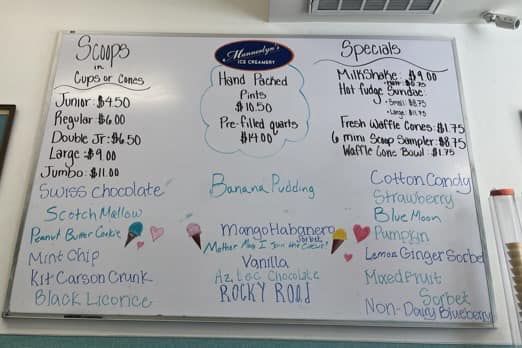 Scoops
in
Cups or Cones
Junior: $4.50
Regular: $6.00
Double Jr: $6.50
Large: $9.00
Jumbo: $11.00
Mannerlyn's
ICE CREAMERY
Hand Packed
Pints
$10.50
Pre-filled quarts
$14.00
Specials
MilkShake: $9.00
Hot fudge Sundae:
-Small: $8.75
-Large: $11.75
Fresh Waffle Cones: $1.75
6 mini Scoop Sampler: $8.75
Waffle Cone Bowl: $1.75
Swiss Chocolate
Scotch Mallow
Peanut Butter Cookie
Mint Chip
Kit Carson Crunk
Black Licorice
Banana Pudding
Mango Habanero
Sorbet
Mother May I Join the Circus?
Vanilla
Az. Loc Chocolate
ROCKY ROAD
Cotton Candy
Strawberry
Blue Moon
Pumpkin
Lemon Ginger Sorbet
Mixed Fruit
Sorbet
Non-Dairy Blueberry